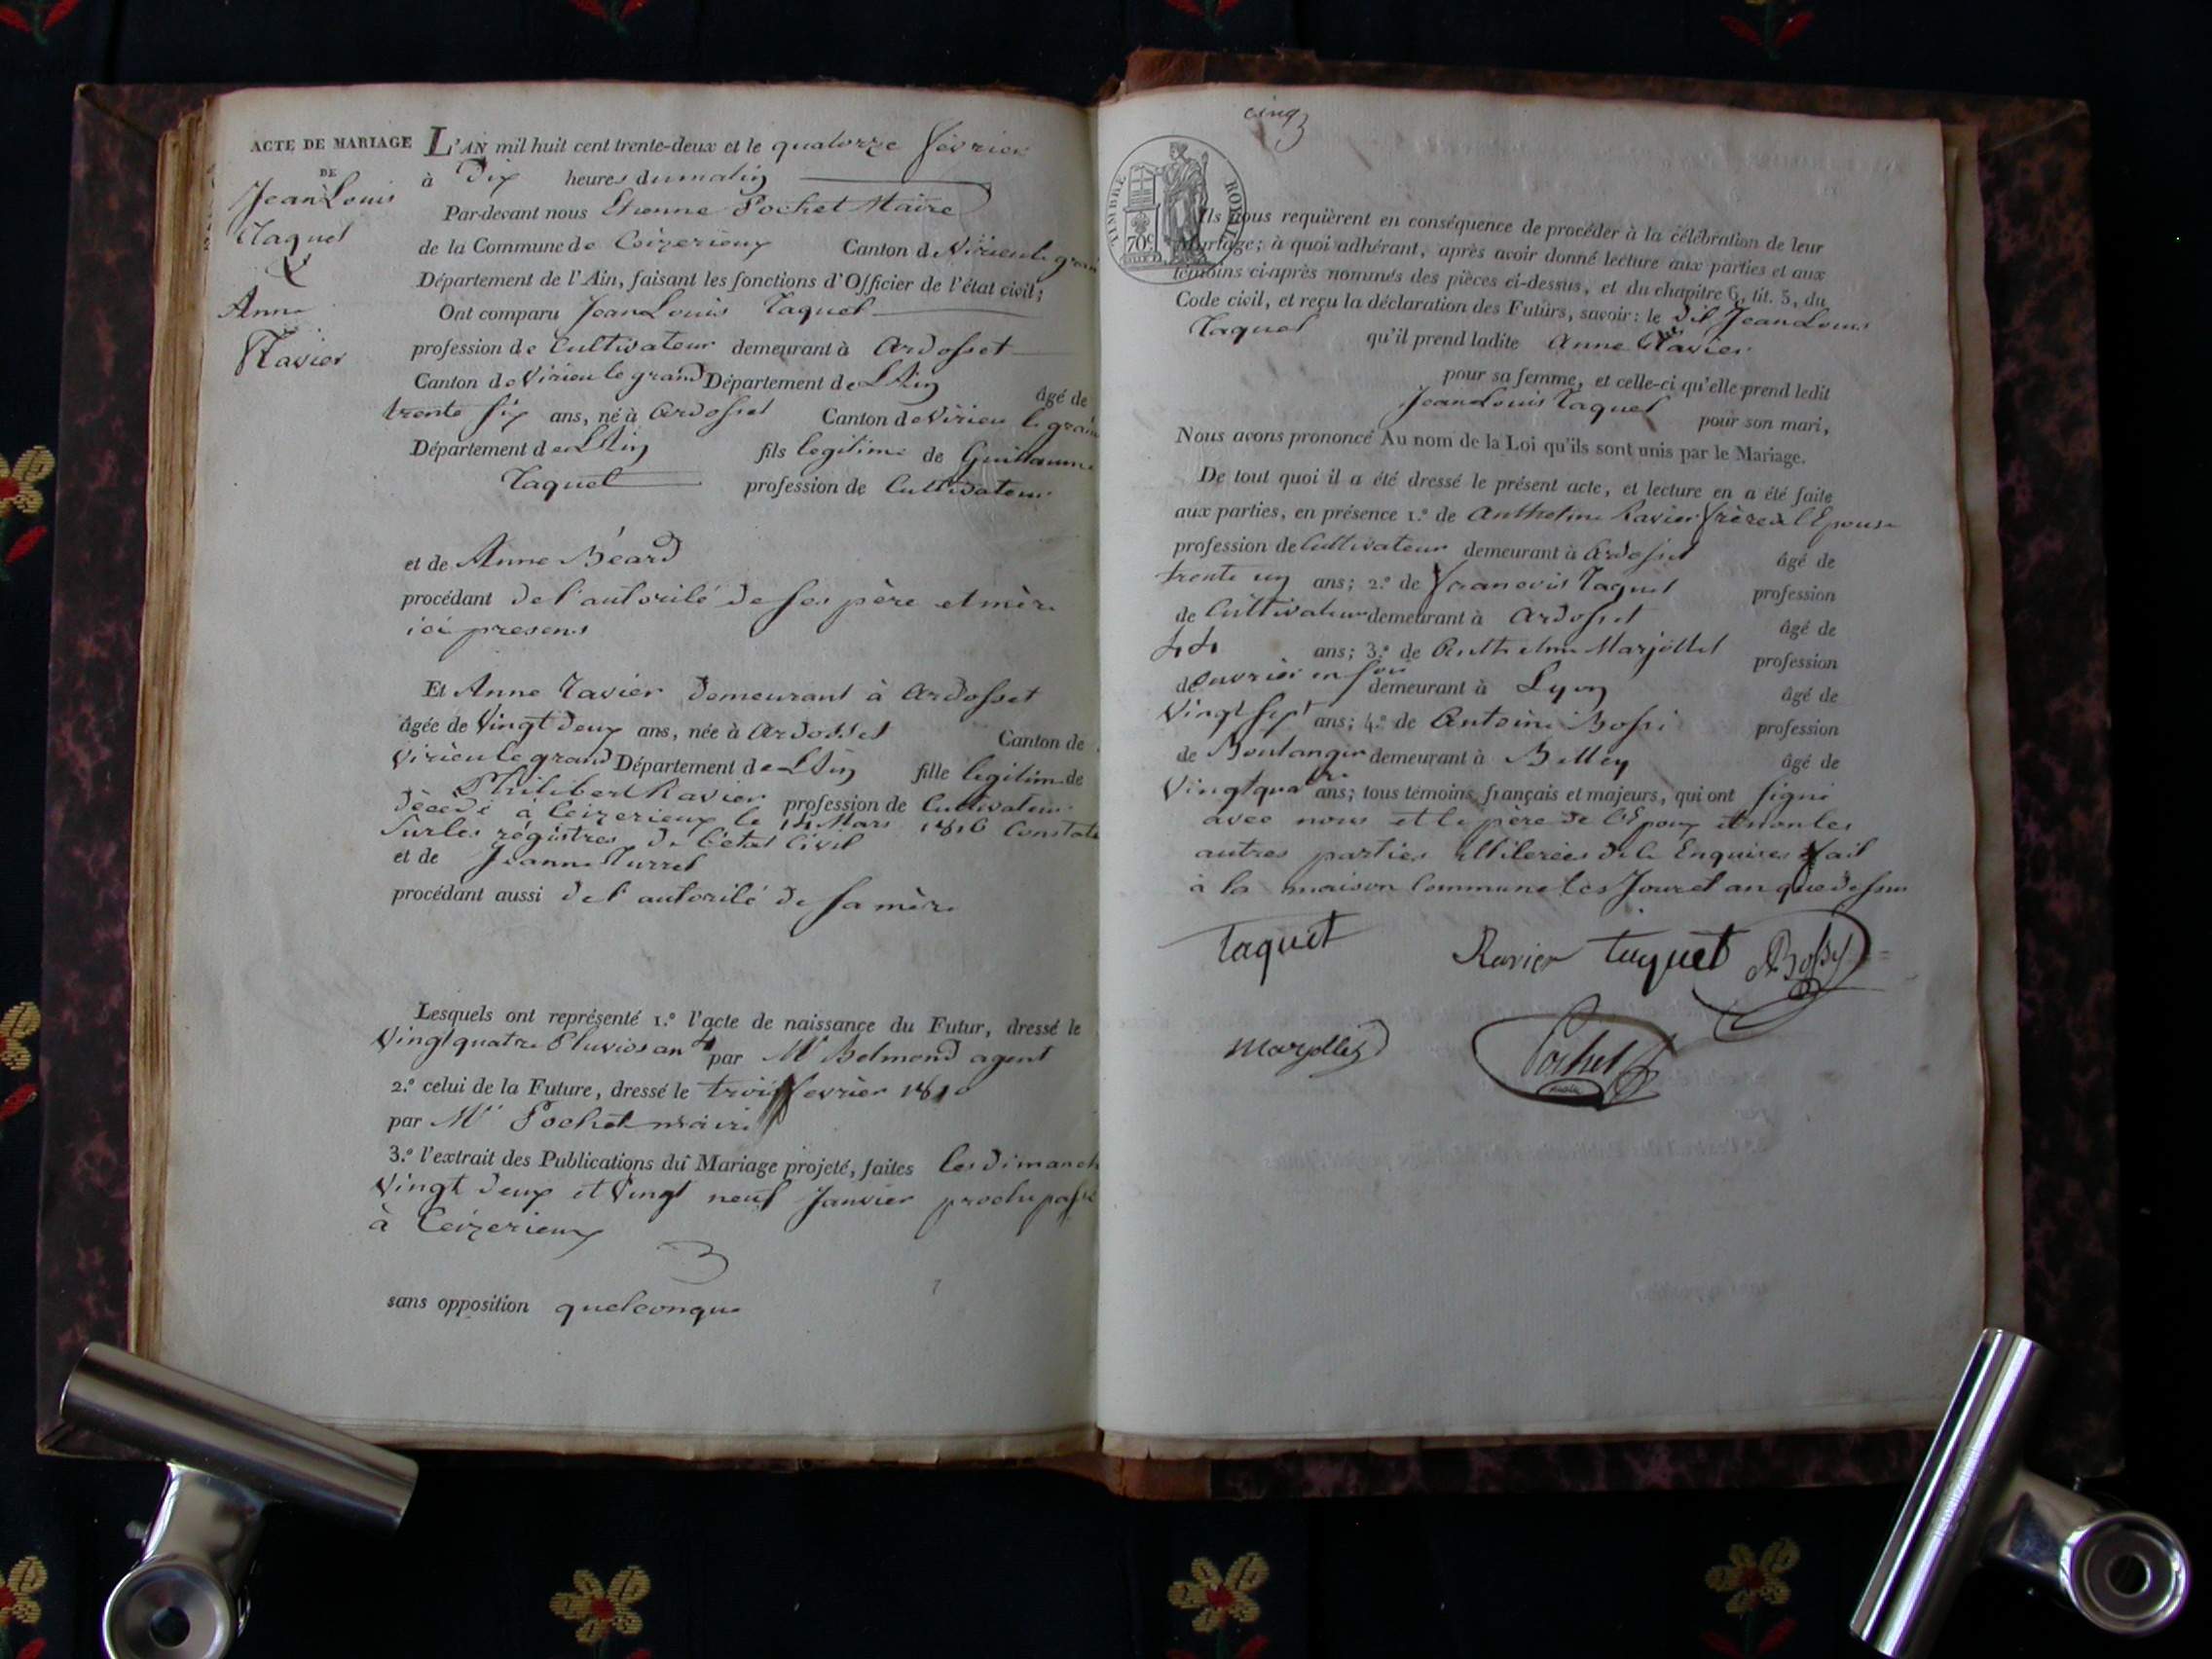 ACTE DE MARIAGE
DE
Jean Louis
Taquet
&
Anne
Ravier
L'AN mil huit cent trente-deux et le quatorze février
à Dix heures du matin
Par-devant nous Etienne Pochet Maire
de la Commune de Ceizerieux Canton de Virieu le grand
Département de l'Ain, faisant les fonctions d'Officier de l'état civil;
Ont comparu Jean Louis Taquet
profession de Cultivateur demeurant à Ardosset
Canton de Virieu le grand Département de L'Ain âgé de
trente six ans, né à Ardosset Canton de Virieu le grand
Département de L'Ain fils legitime de Guillaume
Taquet profession de Cultivateur
et de Anne Béard
procédant de l'autorité de ses père et mère
ici presens
Et Anne Ravier demeurant à Ardosset
âgée de Vingt deux ans, née à Ardosset Canton de
Virieu le grand Département de L'Ain fille legitime de
Philibert Ravier profession de Cultivateur
décédé à Ceizerieux le 14 Mars 1816 Constaté
Sur les régistres de l'état Civil
et de Jeanne Turrel
procédant aussi de l'autorité de sa mère
Lesquels ont représenté 1.º l'acte de naissance du Futur, dressé le
Vingt quatre Pluviose an 4 par Mr Belmond agent
2.º celui de la Future, dressé le trois fevrier 1810
par Mr Pochet maire
3.º l'extrait des Publications du Mariage projeté, faites les dimanch
Vingt deux et Vingt neuf Janvier prochn passé
à Ceizerieux
sans opposition quelconque
cinq
TIMBRE ROYAL
70c
Ils nous requièrent en conséquence de procéder à la célébration de leur
Mariage; à quoi adhérant, après avoir donné lecture aux parties et aux
témoins ci-après nommés des pièces ci-dessus, et du chapitre 6, tit. 5, du
Code civil, et reçu la déclaration des Futurs, savoir: le dit Jean Louis
Taquet qu'il prend ladite Anne Ravier
pour sa femme, et celle-ci qu'elle prend ledit
Jean Louis Taquet pour son mari,
Nous avons prononcé Au nom de la Loi qu'ils sont unis par le Mariage.
De tout quoi il a été dressé le présent acte, et lecture en a été faite
aux parties, en présence 1.º de Anthelme Ravier frère de l'Epouse
profession de Cultivateur demeurant à Ardosset âgé de
trente un ans; 2.º de François Taquet profession
de Cultivateur demeurant à Ardosset âgé de
44 ans; 3.º de Anthelme Marjollet profession
de ouvrier en soie demeurant à Lyon âgé de
Vingt sept ans; 4.º de Antoine Bossi profession
de Boulanger demeurant à Belley âgé de
Vingt quatre ans; tous témoins français et majeurs, qui ont signé
avec nous et le père de l'Epoux et non les
autres parties illiterées de ce Enquises fait
à la maison Commune les Jour et an que dessus
Taquet Ravier Taquet ABossy
Marjollet Pochet
maire